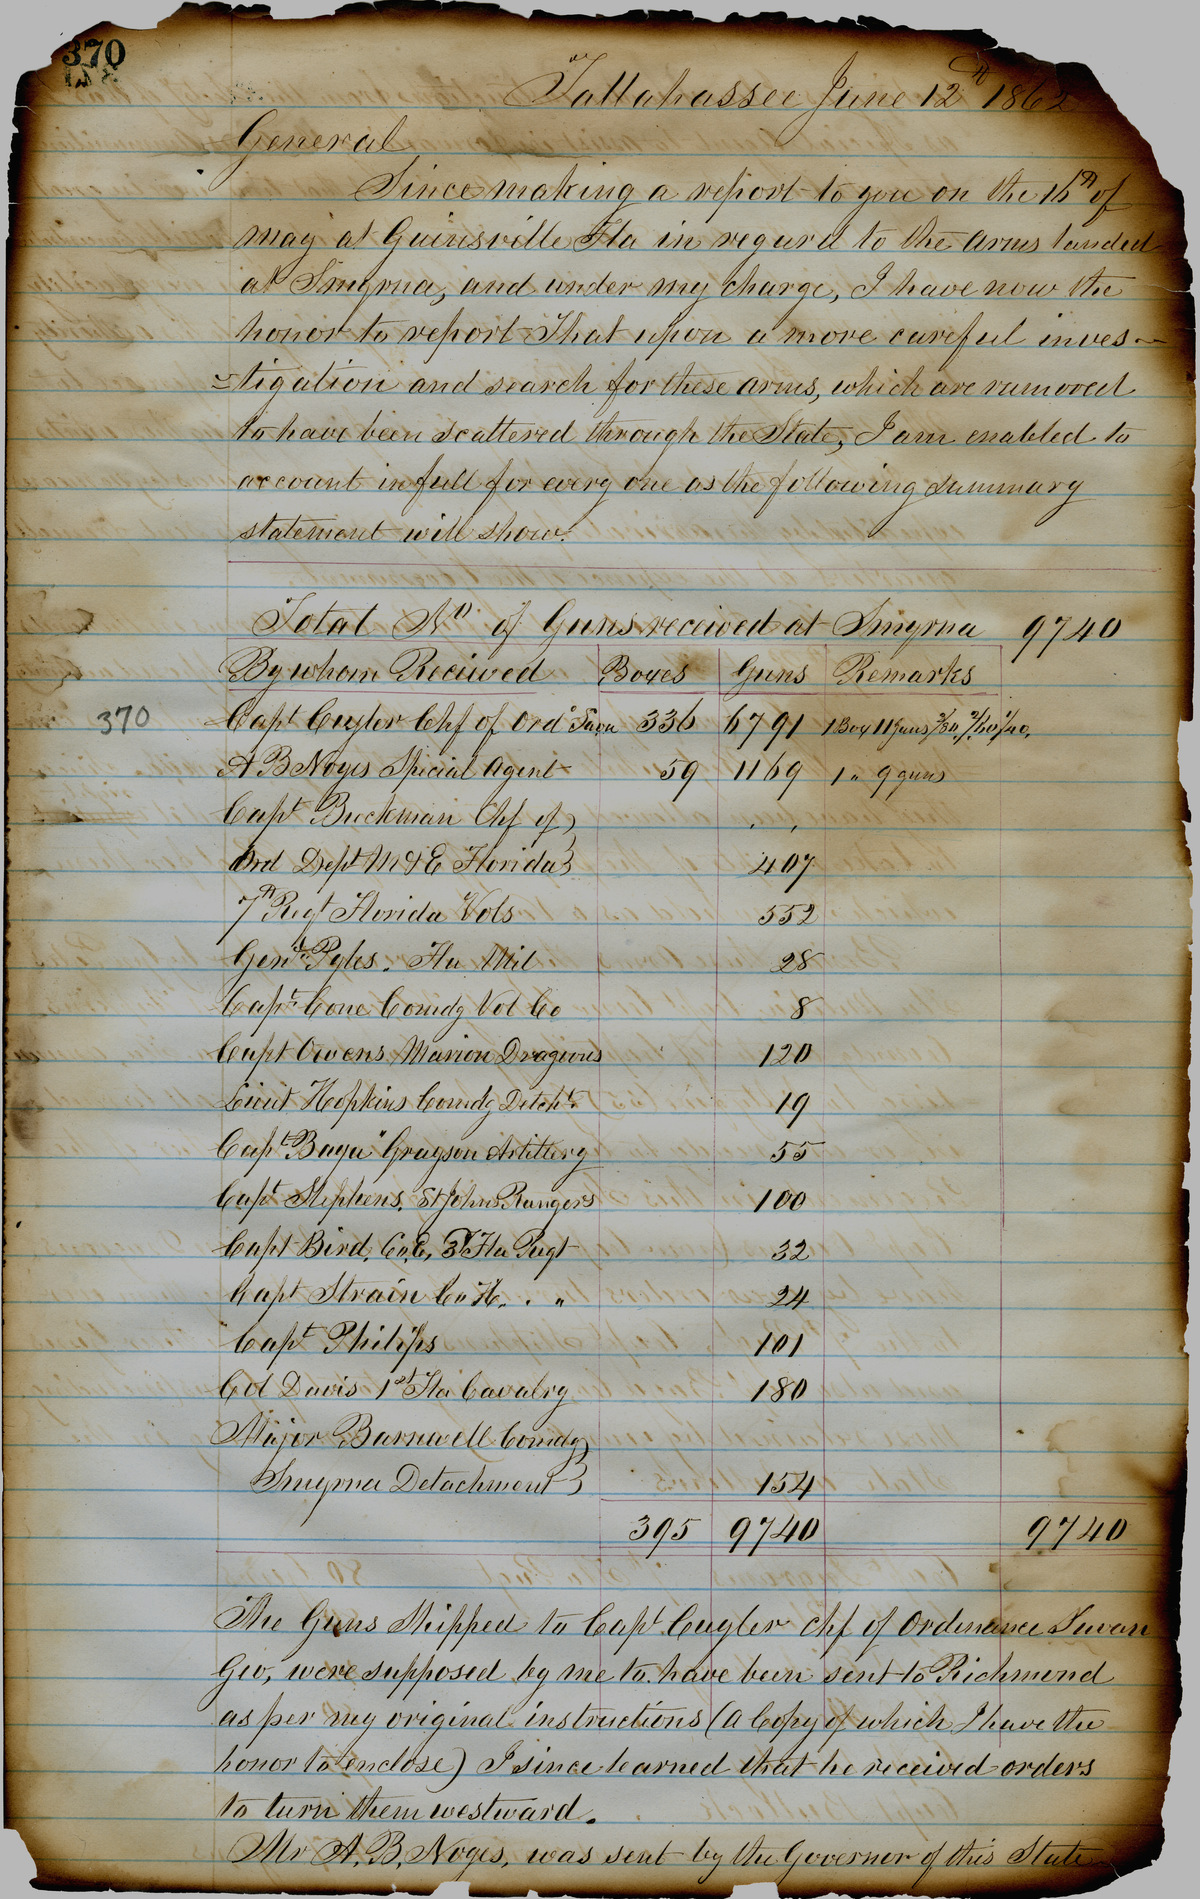 370
Tallahassee June 12th 1862
General
Since making a report to you on the 16th of
may at Guinsville Fla in regard to the arms landed
at Smyrna, and under my charge, I have now the
honor to report That upon a more careful inves-
-tigation and search for these arms, which are rumored
to have been scattered through the State, I am enabled to
account in full for every one as the following summary
statement will show.
Total No. of Guns received at Smyrna 9740
By whom Received Boxes Guns Remarks
370 Capt Cuyler Chf of Ord Sava 336 6791 1 Box 11 Guns 3/30, 2/20, 1/40,
A B Noyes Special Agent 59 1169 1 " 9 guns
Capt Buckman Chf of }
Ord Dept M & E Florida } 407
7th Regt Florida Vols 552
Genl Pyles. Fla Mil 28
Capt. Cone Comdg Vol Co 8
Capt Owens Marion Dragoons 120
Lieut Hopkins Comdg Detcht. 19
Capt Baya "Grayson Artillery 55
Capt Stephens, St Johns Rangers 100
Capt Bird, Co. E, 3d Fla Regt 32
Capt Strain Co H. . " 24
Capt Philips 101
Col Davis 1st Fla Cavalry 180
Major Barnwell Comdg }
Smyrna Detachment } 154
395 9740 9740
The Guns Shipped to Capt Cuyler Chf of Ordenance Savan
Geo, were supposed by me to have been sent to Richmond
as per my original instructions (a Copy of which I have the
honor to enclose) I since learned that he received orders
to turn them westward.
Mr A. B. Noyes, was sent by the Governor of this State